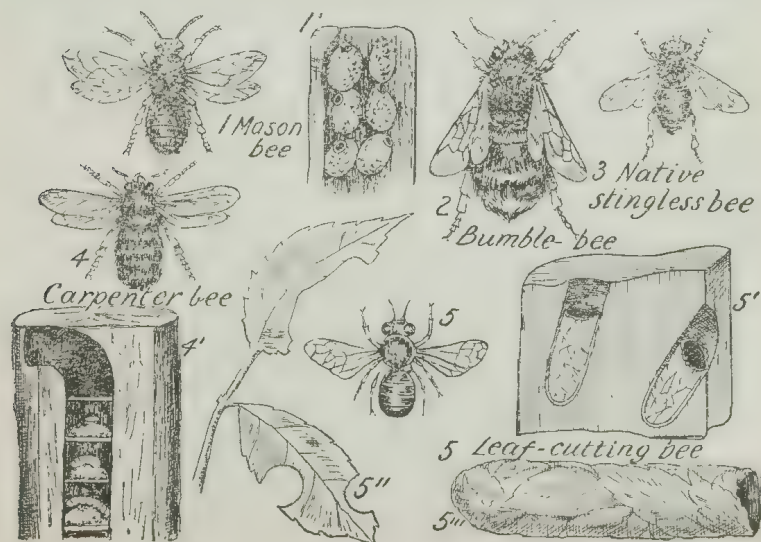 1'
1 Mason
bee
2
Bumble-bee
3 Native
stingless bee
4
Carpenter bee
4'
5
5'
5 Leaf-cutting bee
5"
5'''